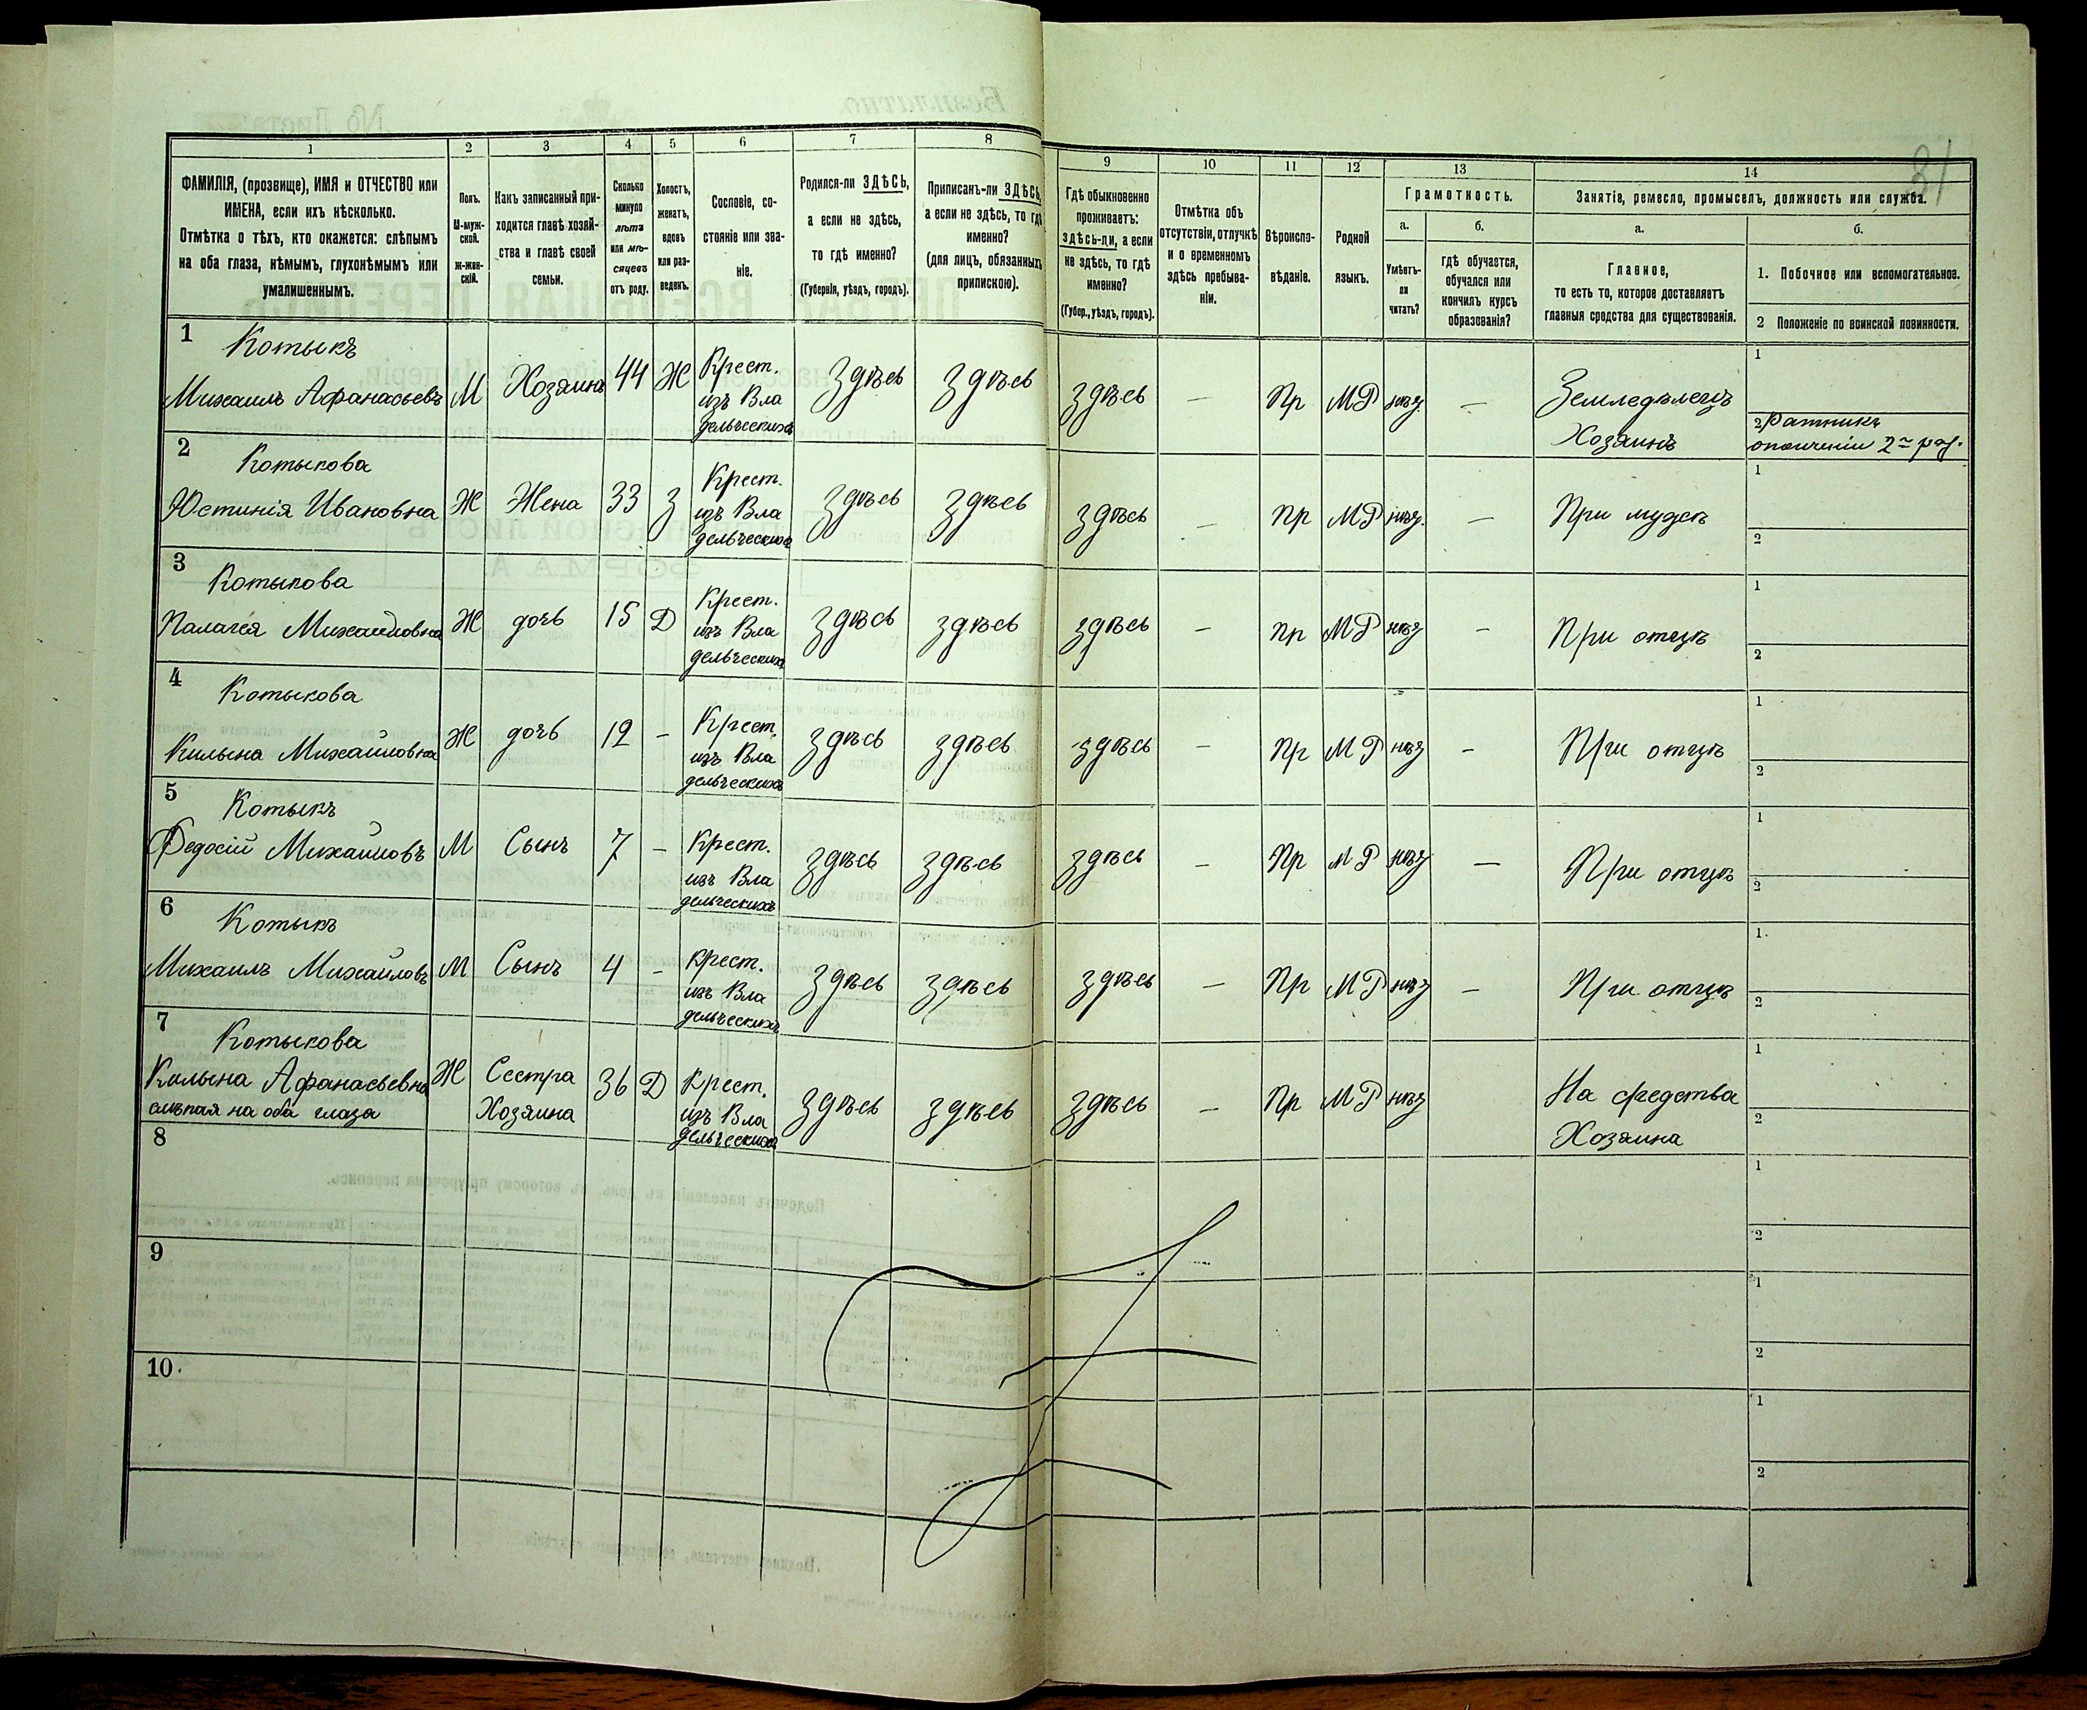 31
1 2 3 4 5 6 7 8 9 10 11 12 13 14
ФАМИЛІЯ, (прозвище), ИМЯ и ОТЧЕСТВО или
ИМЕНА, если ихъ нѣсколько.
Отмѣтка о тѣхъ, кто окажется: слѣпымъ
на оба глаза, нѣмымъ, глухонѣмымъ или
умалишеннымъ.
Полъ.
М-муж-
ской.
ж-жен-
скій.
Какъ записанный при-
ходится главѣ хозяй-
ства и главѣ своей
семьи.
Сколько
минуло
лѣтъ
или мѣ-
сяцевъ
отъ роду.
Холостъ,
женатъ,
вдовъ
или раз-
веденъ.
Сословіе, со-
стояніе или зва-
ніе.
Родился-ли ЗДѢСЬ,
а если не здѣсь,
то гдѣ именно?
(Губернія, уѣздъ, городъ).
Приписанъ-ли ЗДѢСЬ,
а если не здѣсь, то гдѣ
именно?
(для лицъ, обязанныхъ
припискою).
Гдѣ обыкновенно
проживаетъ:
здѣсь-ли, а если
не здѣсь, то гдѣ
именно?
(Губер., уѣздъ, городъ).
Отмѣтка объ
отсутствіи, отлучкѣ
и о временномъ
здѣсь пребыва-
ніи.
Вѣроиспо-
вѣданіе.
Родной
языкъ.
Грамотность.
а.
Умѣетъ-
ли
читать?
б.
гдѣ обучается,
обучался или
кончилъ курсъ
образованія?
Занятіе, ремесло, промыселъ, должность или служба.
а.
Главное,
то есть то, которое доставляетъ
главныя средства для существованія.
б.
1. Побочное или вспомогательное.
2 Положеніе по воинской повинности.
1 Котыкъ
Михаилъ Афанасьевъ М Хозяинъ 44 Ж Крест. изъ Вла дельческихъ здѣсь здѣсь здѣсь — Пр МР нѣт — Земледѣлецъ Хозяинъ
1
2 Ратникъ
ополченія 2го раз.
2 Котыкова
Юстинія Ивановна Ж Жена 33 З Крест. изъ Вла дельческихъ здѣсь здѣсь здѣсь — Пр МР нѣт — При мужѣ
1
2
3 Котыкова
Палагея Михайловна Ж дочь 15 Д Крест. изъ Вла дельческихъ здѣсь здѣсь здѣсь — Пр МР нѣт — При отцѣ
1
2
4 Котыкова
Килына Михайловна Ж дочь 12 — Крест. изъ Вла дельческихъ здѣсь здѣсь здѣсь — Пр МР нѣт — При отцѣ
1
2
5 Котыкъ
Федосій Михайловъ М Сынъ 7 — Крест. изъ Вла дельческихъ здѣсь здѣсь здѣсь — Пр МР нѣт — При отцѣ
1
2
6 Котыкъ
Михаилъ Михайловъ М Сынъ 4 — Крест. изъ Вла дельческихъ здѣсь здѣсь здѣсь — Пр МР нѣт — При отцѣ
1
2
7 Котыкова
Килына Афанасьевна Ж Сестра Хозяина 36 Д Крест. изъ Вла дельческихъ здѣсь здѣсь здѣсь — Пр МР нѣт На средства Хозяина
слѣпая на оба глаза
1
2
8
1
2
9
1
2
10
1
2